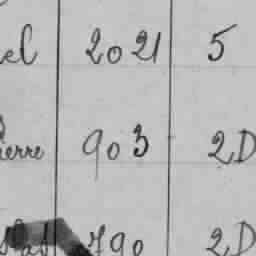 el 2021 5
ierre 903 2D
slas 790 2D